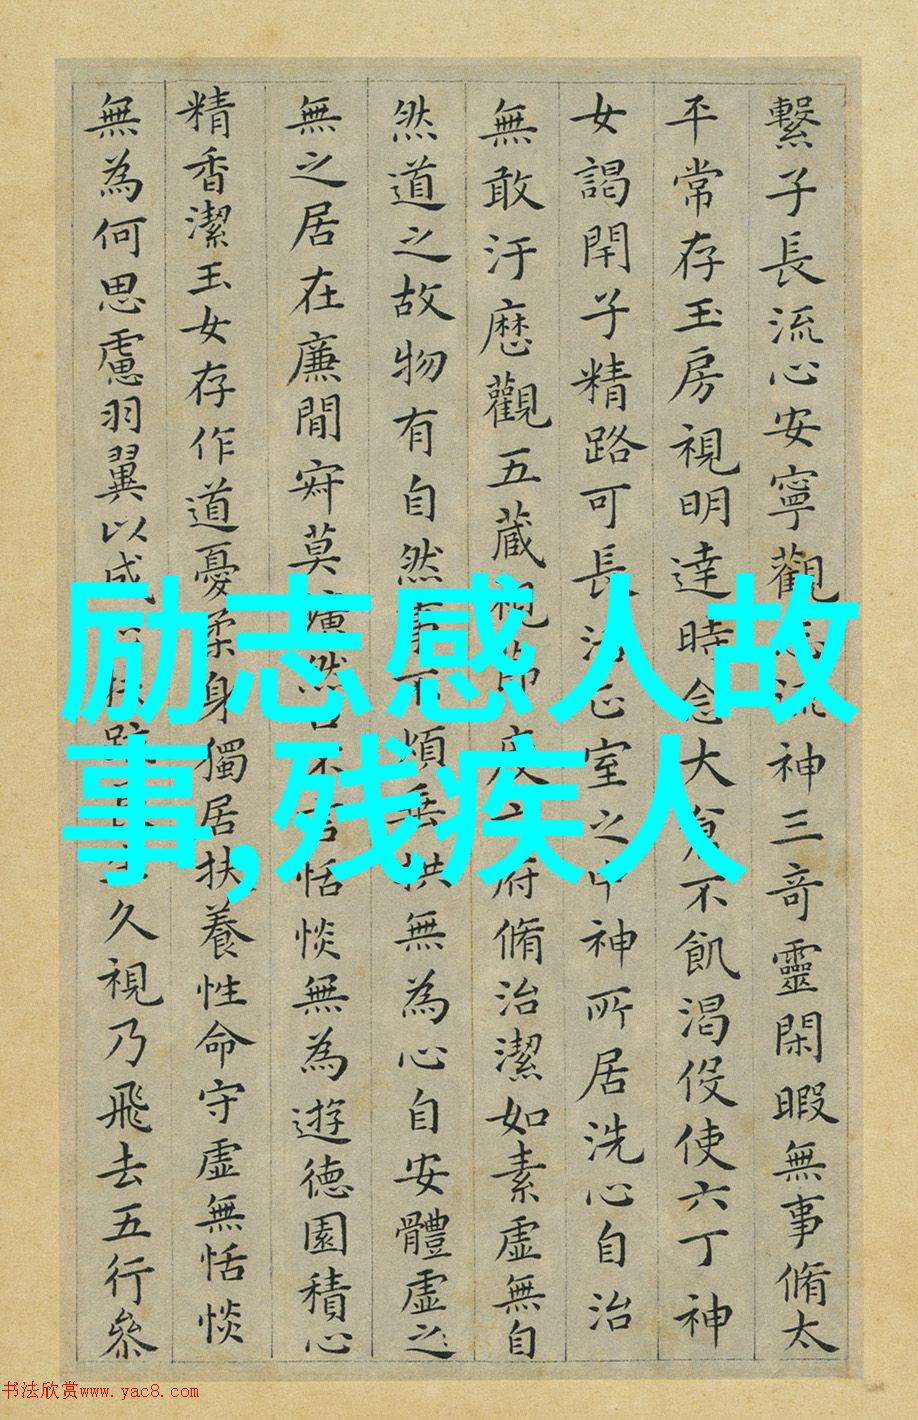 繫子長流心安寧觀志流神三奇靈閑暇無事脩太
平常存玉房視明達時念大倉不飢渴役使六丁神
女謁閇子精路可長活正室之中神所居洗心自治
無敢汙歷觀五藏視節度六府脩治潔如素虛無自
然道之故物有自然事不煩垂拱無為心自安體虛之
無之居在廉閒寂莫曠然口不言恬惔無為遊德園積心
精香潔玉女存作道憂柔身獨居扶養性命守虛無恬惔
無為何思慮羽翼以成正扶疏長生久視乃飛去五行參
励志感人故
事,残疾人
书法欣赏www.yac8.com